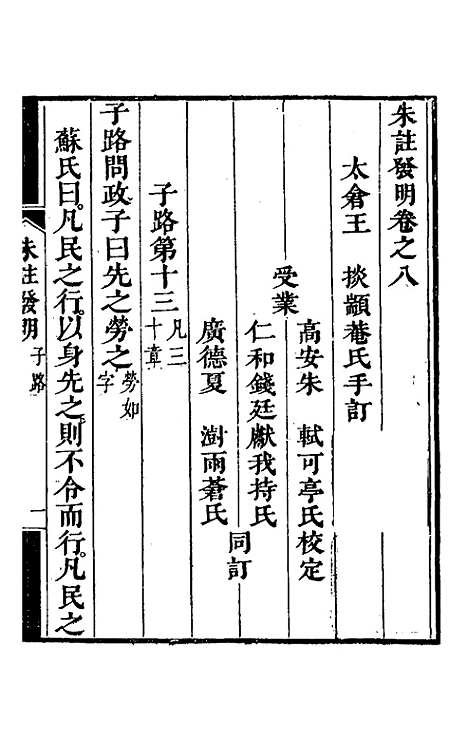 朱註發明卷之八
太倉王　掞顓菴氏手訂
高安朱　軾可亭氏校定
受業
仁和錢廷獻我持氏
同訂
廣德夏　澍雨蒼氏
子路第十三凡三十章
子路問政子曰先之勞之勞如字
蘇氏曰凡民之行以身先之則不令而行凡民之
朱註發明　子路　一